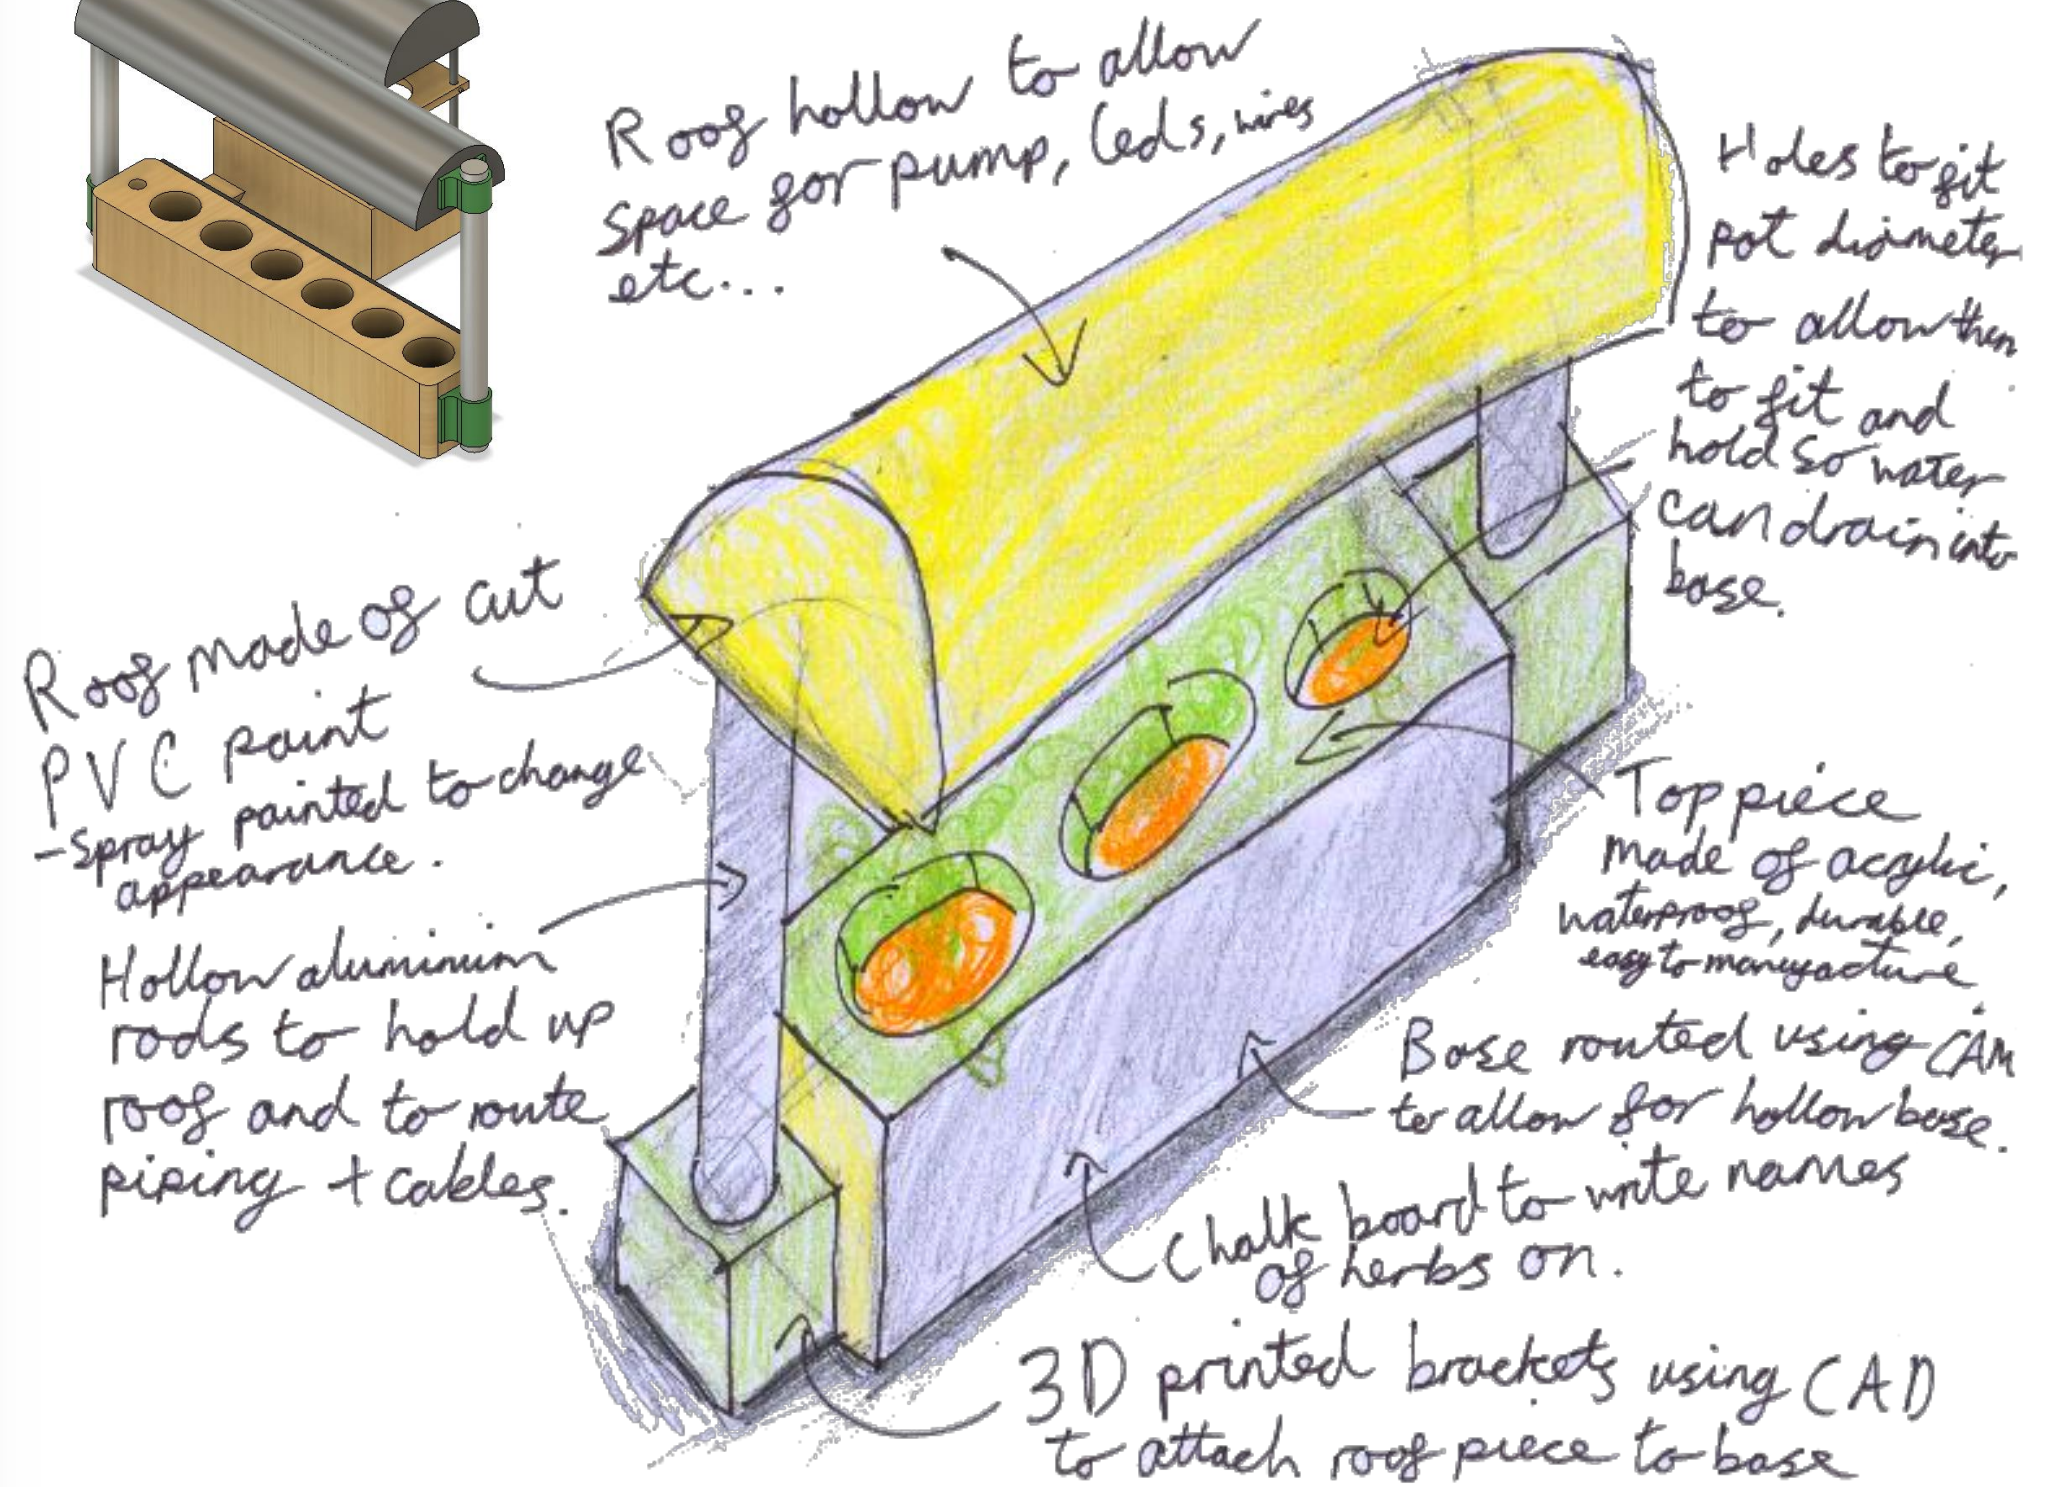 Roof hollow to allow
space for pump, leds, wires
etc...
Holes to fit
pot diameter
to allow them
to fit and
hold so water
can drain into
base.
Roof made of cut
PVC paint
- Spray painted to change
appearance.
Hollow aluminium
rods to hold up
roof and to route
piping + cables.
Top piece
made of acrylic,
waterproof, durable,
easy to manufacture
Base routed using CAM
to allow for hollow base.
Chalk board to write names
of herbs on.
3D printed brackets using CAD
to attach roof piece to base